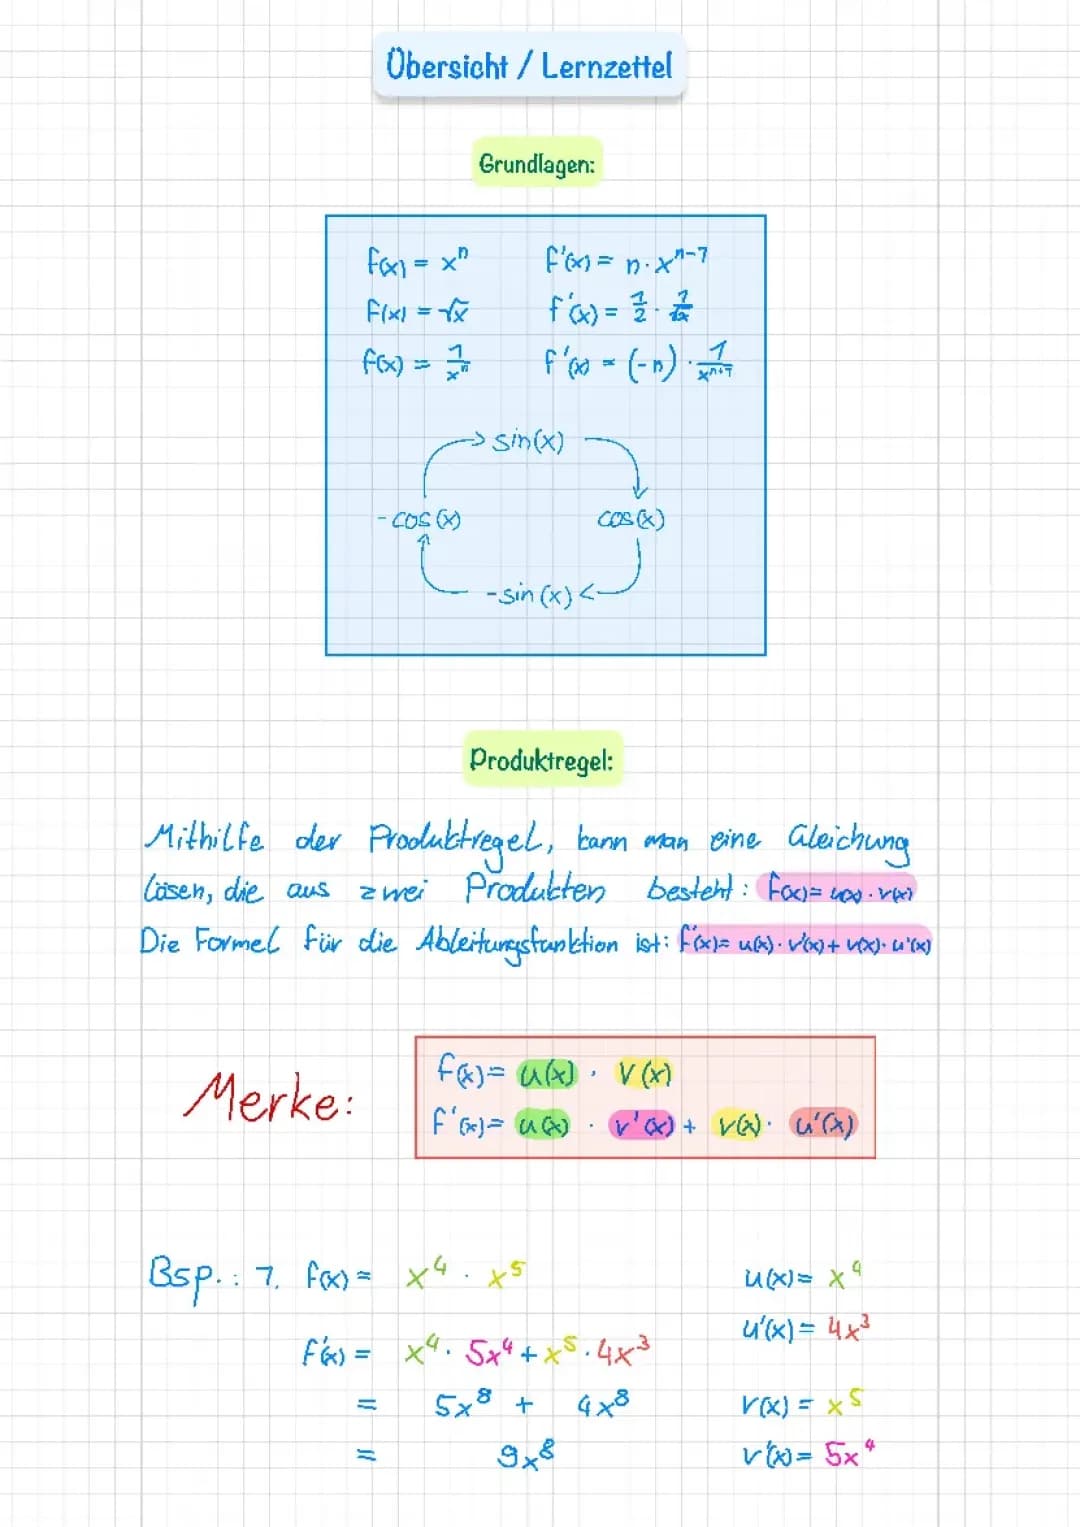 Übersicht / Lernzettel
Grundlagen:
f(x) = xⁿ f'(x) = n · xⁿ⁻¹
f(x) = √x f'(x) = 1/2 · 1/√x
f(x) = 1/xⁿ f'(x) = (-n) · 1/xⁿ⁺¹
sin(x)
-cos(x) cos(x)
-sin(x)
Produktregel:
Mithilfe der Produktregel, kann man eine Gleichung
lösen, die aus zwei Produkten besteht: f(x)= u(x) · v(x)
Die Formel für die Ableitungsfunktion ist: f'(x)= u(x) · v'(x) + v(x) · u'(x)
Merke:
f(x)= u(x) · v(x)
f'(x)= u(x) · v'(x) + v(x) · u'(x)
Bsp.: 1. f(x) = x⁴ · x⁵ u(x)= x⁴
u'(x)= 4x³
f'(x) = x⁴ · 5x⁴ + x⁵ · 4x³
= 5x⁸ + 4x⁸ v(x) = x⁵
= 9x⁸ v'(x)= 5x⁴